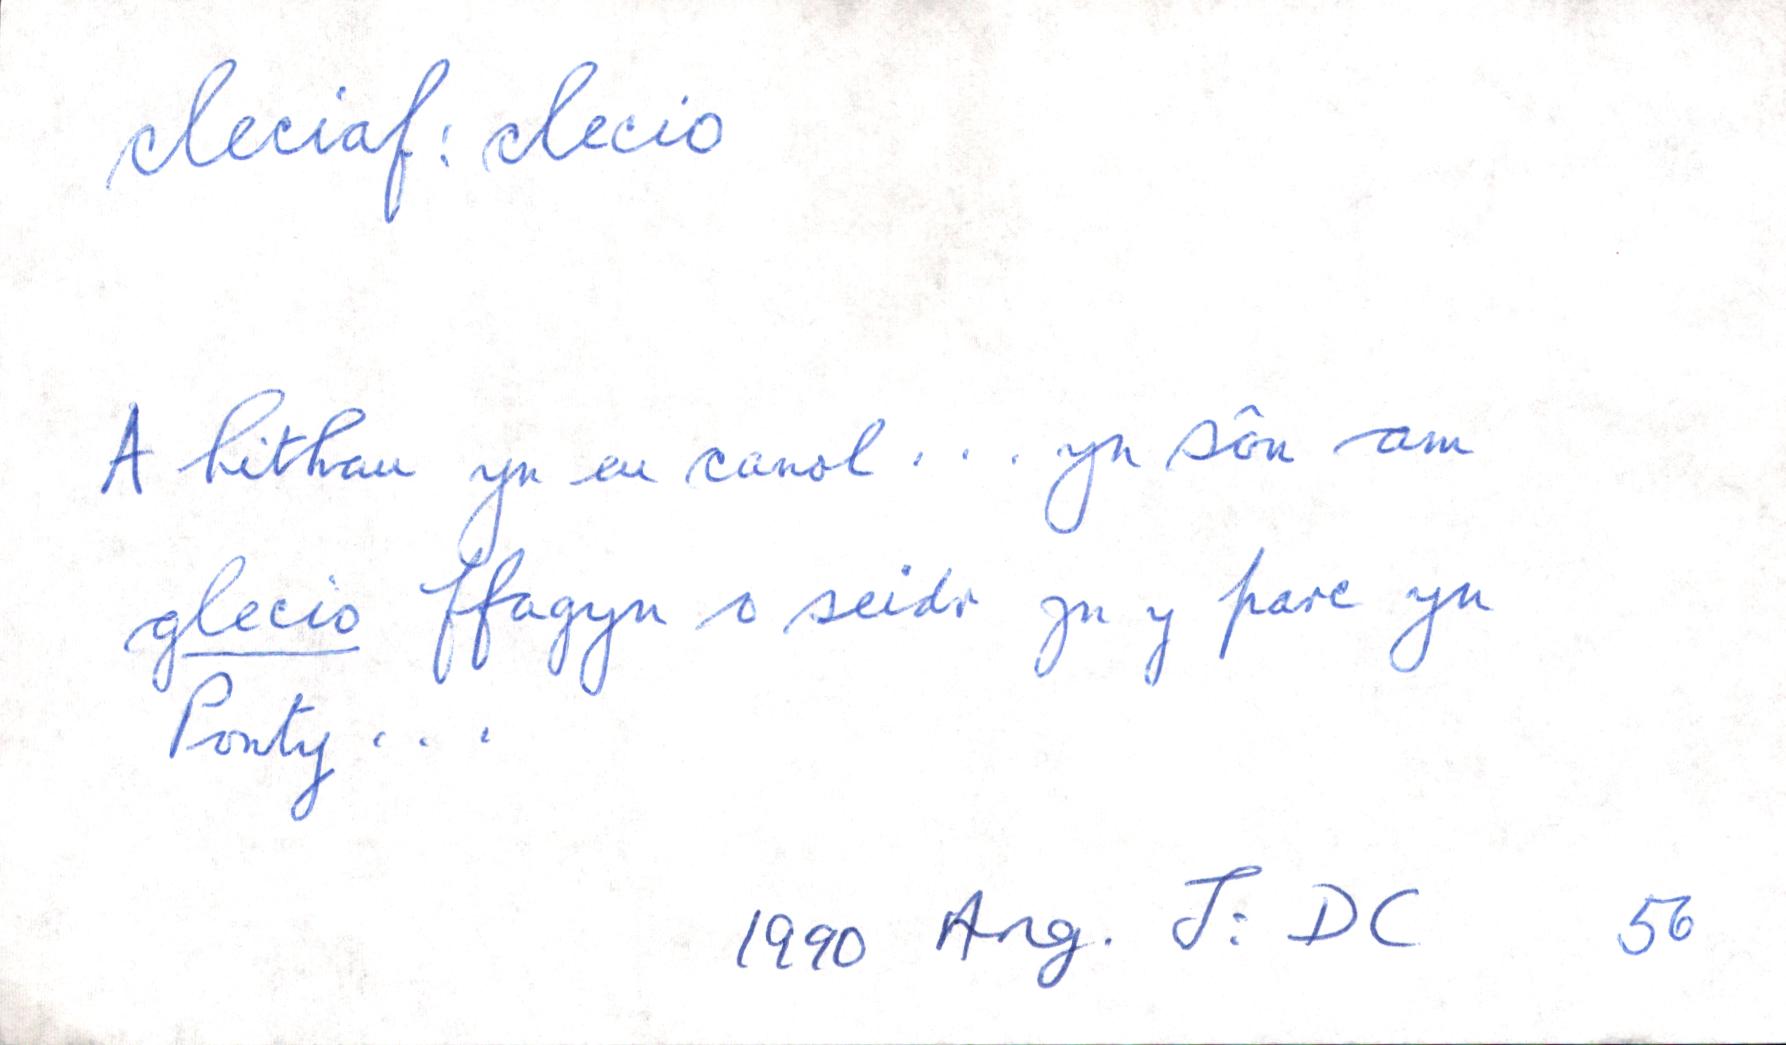 cleciaf: clecio
A hithau yn eu canol... yn sôn am
glecio ffagyn o seidr yn y parc yn
Ponty...
1990 Ang. J: DC 56